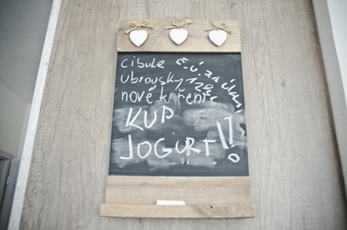 cibule
ubrousky
nové kořenř
KUP
JOGURT!!